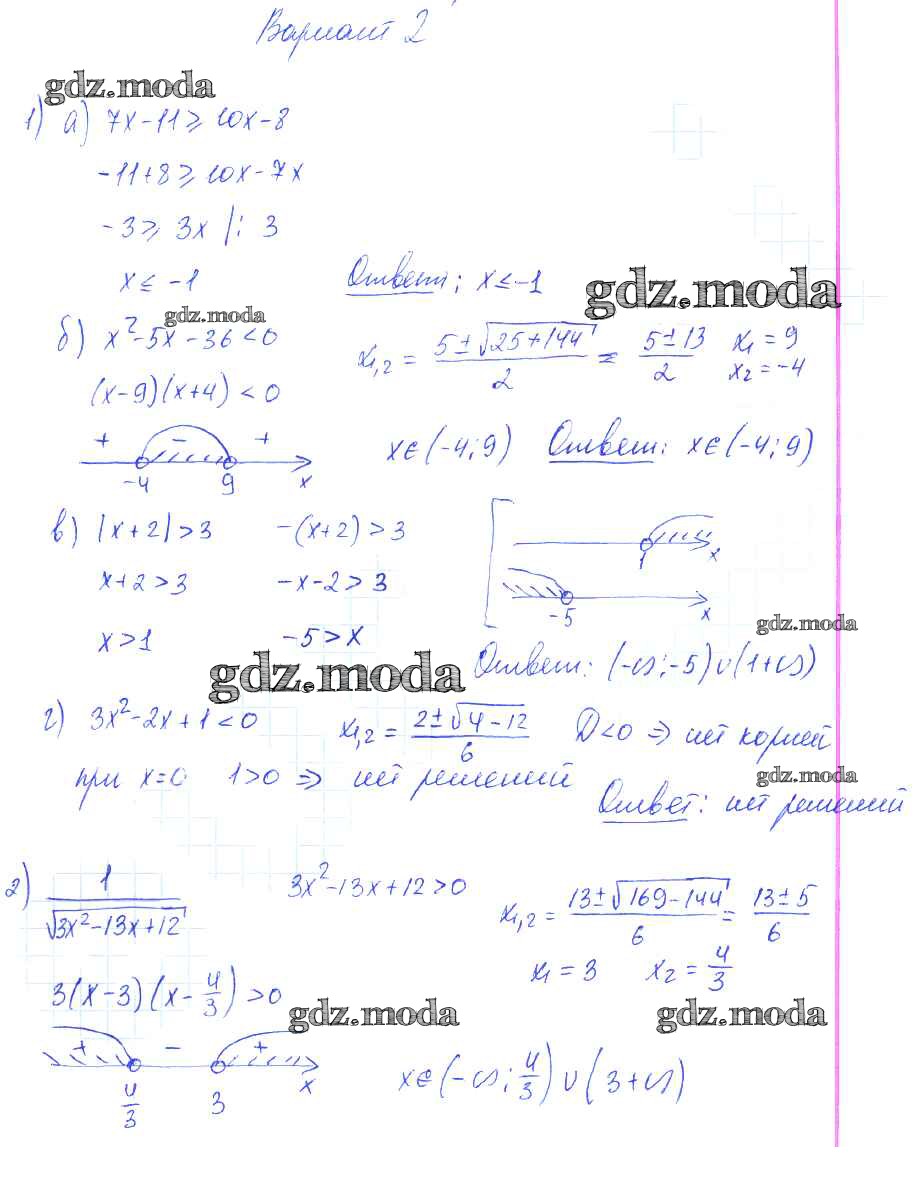 Вариант 2
gdz.moda
1) а) 7x-11≥10x-8
-11+8≥10x-7x
-3≥3x |: 3
x≤-1 Ответ: x≤-1
gdz.moda
gdz.moda
б) x²-5x-36<0 x₁,₂ = (5±√(25+144))/2 = (5±13)/2 x₁=9 x₂=-4
(x-9)(x+4)<0
+ - + x∈(-4;9) Ответ: x∈(-4;9)
-4 9 x
в) |x+2|>3 -(x+2)>3
1 x
x+2>3 -x-2>3
-5 x
x>1 -5>x
gdz.moda
Ответ: (-∞;-5)∪(1+∞)
gdz.moda
г) 3x²-2x+1<0 x₁,₂ = (2±√(4-12))/6 D<0 ⇒ нет корней
при x=0 1>0 ⇒ нет решений
gdz.moda
Ответ: нет решений
2) 1/√(3x²-13x+12) 3x²-13x+12>0 x₁,₂ = (13±√(169-144))/6 = (13±5)/6
x₁=3 x₂=4/3
3(x-3)(x-4/3)>0
gdz.moda gdz.moda
+ - +
4/3 3 x
x∈(-∞;4/3)∪(3+∞)